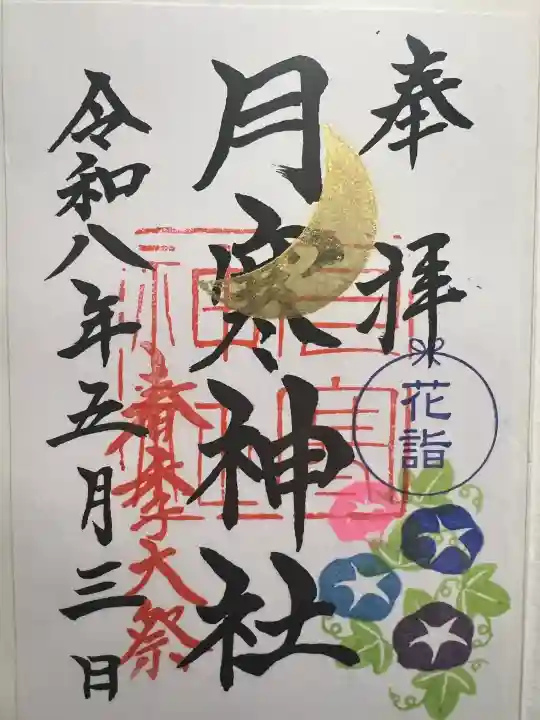 奉拝
花詣
月寒神社
春季大祭
令和八年五月三日